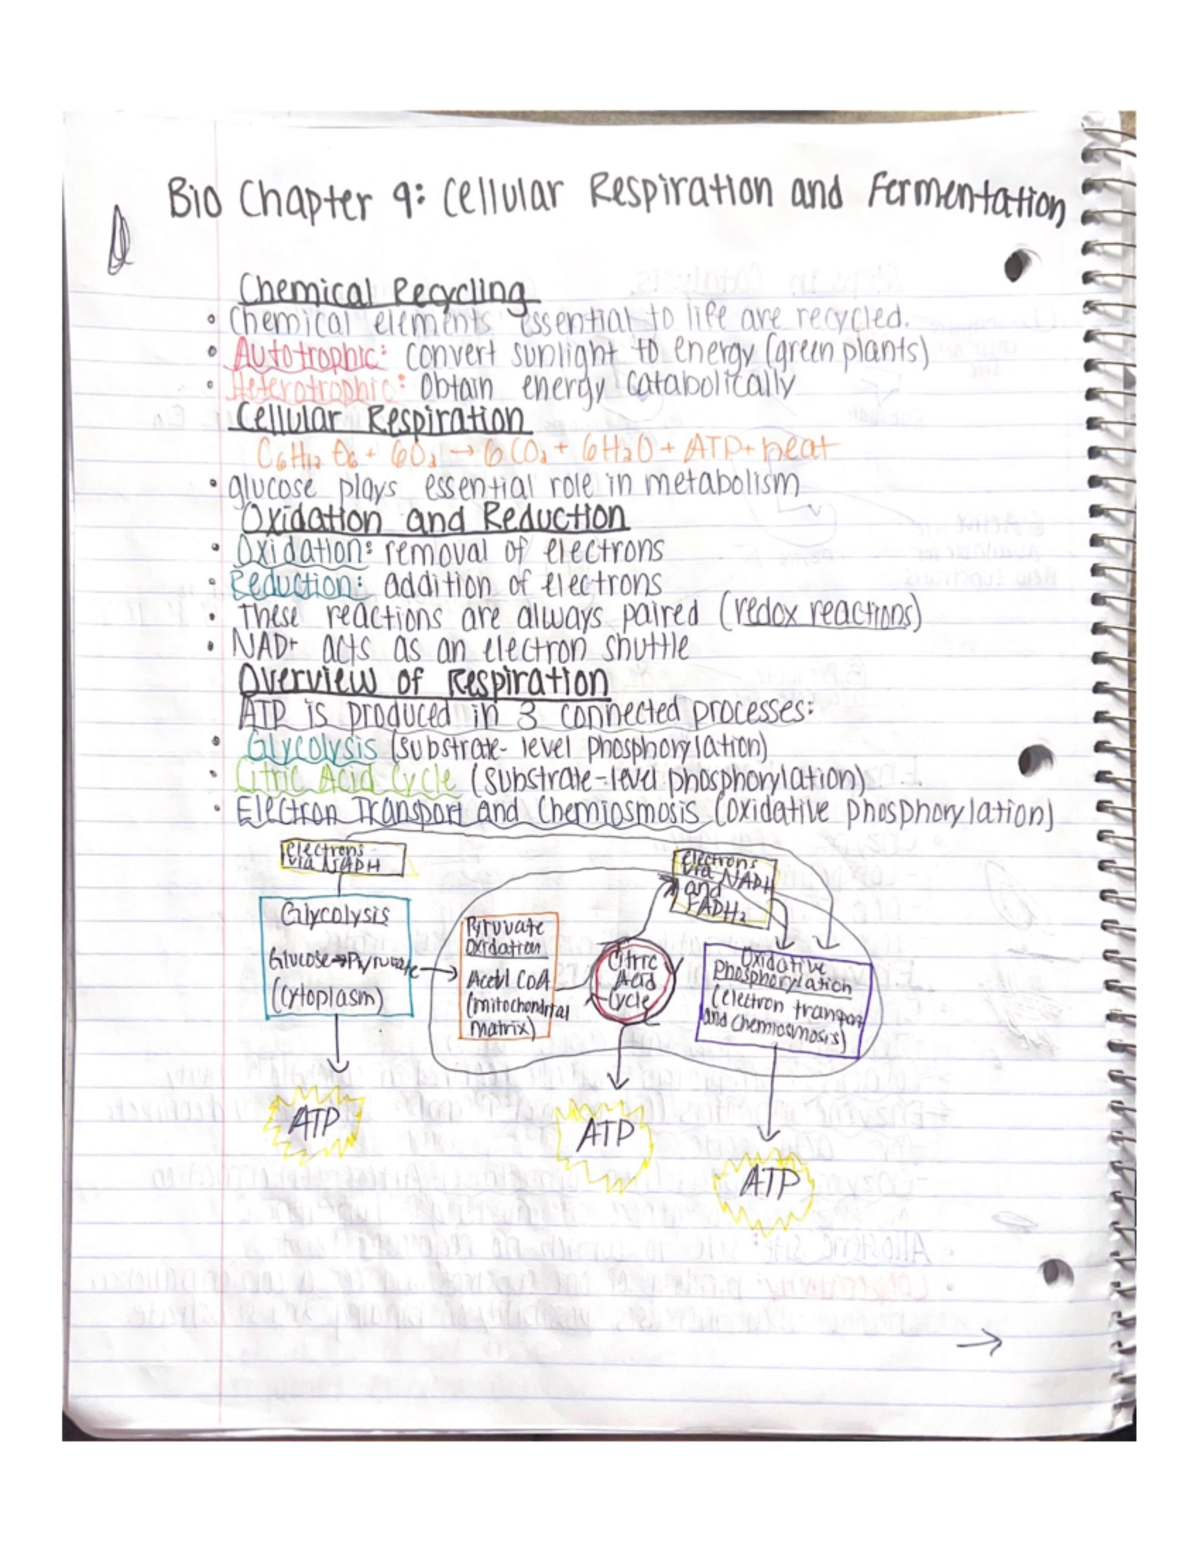 Bio Chapter 9: Cellular Respiration and Fermentation
Chemical Recycling
• Chemical elements essential to life are recycled.
• Autotrophic: convert sunlight to energy (green plants)
• Heterotrophic: Obtain energy catabolically
Cellular Respiration
C6H12O6 + 6O2 → 6CO2 + 6H2O + ATP + heat
• glucose plays essential role in metabolism
Oxidation and Reduction
• Oxidation: removal of electrons
• Reduction: addition of electrons
• These reactions are always paired (redox reactions)
• NAD+ acts as an electron shuttle
Overview of Respiration
ATP is produced in 3 connected processes:
• Glycolysis (substrate-level phosphorylation)
• Citric Acid Cycle (substrate-level phosphorylation)
• Electron Transport and Chemiosmosis (oxidative phosphorylation)
electrons
via NADH
Glycolysis
Glucose → Pyruvate
(cytoplasm)
Pyruvate
oxidation
Acetyl CoA
(mitochondrial
matrix)
Citric
Acid
Cycle
electrons
via NADH
and
FADH2
Oxidative
phosphorylation
(electron transport
and chemiosmosis)
ATP
ATP
ATP
→